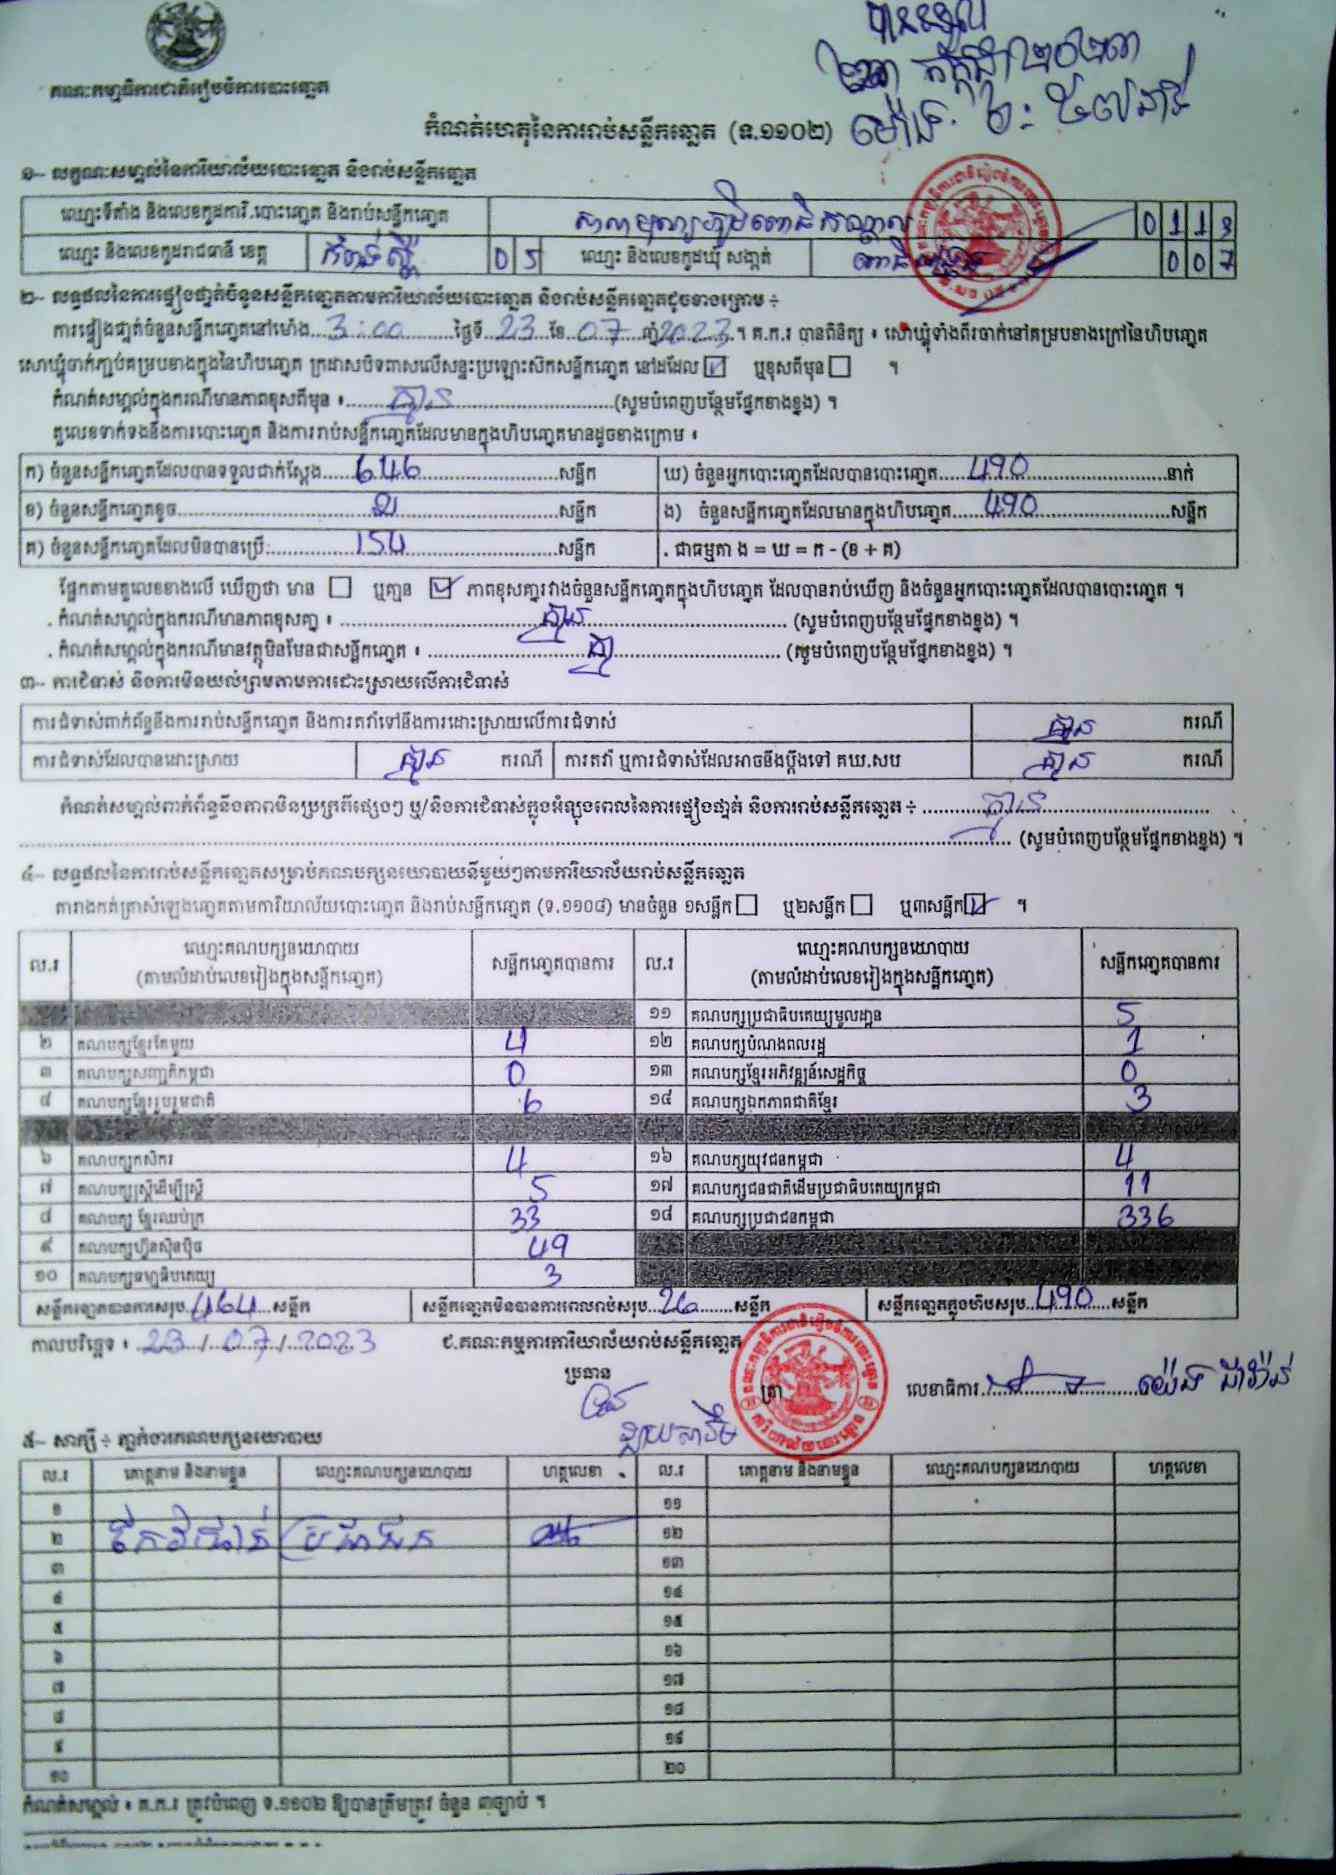 គណៈកម្មាធិការជាតិរៀបចំការបោះឆ្នោត
កំណត់ហេតុនៃការរាប់សន្លឹកឆ្នោត (ទ.១១០២)
១- លក្ខណៈសម្គាល់នៃការិយាល័យបោះឆ្នោត និងរាប់សន្លឹកឆ្នោត
ឈ្មោះទីតាំង និងលេខកូដការិ.បោះឆ្នោត និងរាប់សន្លឹកឆ្នោត 0113
ឈ្មោះ និងលេខកូដរាជធានី ខេត្ត កំពង់ស្ពឺ 05 ឈ្មោះ និងលេខកូដឃុំ សង្កាត់ 007
២- លទ្ធផលនៃការផ្ទៀងផ្ទាត់ចំនួនសន្លឹកឆ្នោតតាមការិយាល័យបោះឆ្នោត និងរាប់សន្លឹកឆ្នោតដូចខាងក្រោម ÷
ការផ្ទៀងផ្ទាត់ចំនួនសន្លឹកឆ្នោតនៅម៉ោង 3:00 ថ្ងៃទី 23 ខែ 07 ឆ្នាំ 2023 ។ គ.ក.រ បានពិនិត្យ ៖ សោឃ្លុំទាំងពីរចាក់នៅគម្របខាងក្រៅនៃហិបឆ្នោត
សោឃ្លុំចាក់ភ្ជាប់គម្របខាងក្នុងនៃហិបឆ្នោត ក្រដាសបិទពាសលើសន្ទះប្រឡោះស៊កសន្លឹកឆ្នោត នៅដដែល ☑ ឬខុសពីមុន ☐ ។
កំណត់សម្គាល់ក្នុងករណីមានភាពខុសពីមុន ៖ គ្មាន (សូមបំពេញបន្ថែមផ្នែកខាងខ្នង) ។
តួលេខទាក់ទងនឹងការបោះឆ្នោត និងការរាប់សន្លឹកឆ្នោតដែលមានក្នុងហិបឆ្នោតមានដូចខាងក្រោម ៖
ក) ចំនួនសន្លឹកឆ្នោតដែលបានទទួលជាក់ស្តែង 646 សន្លឹក ឃ) ចំនួនអ្នកបោះឆ្នោតដែលបានបោះឆ្នោត 490 នាក់
ខ) ចំនួនសន្លឹកឆ្នោតខូច សន្លឹក ង) ចំនួនសន្លឹកឆ្នោតដែលមានក្នុងហិបឆ្នោត 490 សន្លឹក
គ) ចំនួនសន្លឹកឆ្នោតដែលមិនបានប្រើ 154 សន្លឹក . ជាធម្មតា ង = ឃ = ក - (ខ + គ)
ផ្អែកតាមតួលេខខាងលើ ឃើញថា មាន ☐ ឬគ្មាន ☑ ភាពខុសគ្នារវាងចំនួនសន្លឹកឆ្នោតក្នុងហិបឆ្នោត ដែលបានរាប់ឃើញ និងចំនួនអ្នកបោះឆ្នោតដែលបានបោះឆ្នោត ។
. កំណត់សម្គាល់ក្នុងករណីមានភាពខុសគ្នា ៖ គ្មាន (សូមបំពេញបន្ថែមផ្នែកខាងខ្នង) ។
. កំណត់សម្គាល់ក្នុងករណីមានវត្ថុមិនមែនជាសន្លឹកឆ្នោត ៖ (សូមបំពេញបន្ថែមផ្នែកខាងខ្នង) ។
៣- ការជំទាស់ និងការមិនយល់ព្រមតាមការដោះស្រាយលើការជំទាស់
ការជំទាស់ពាក់ព័ន្ធនឹងការរាប់សន្លឹកឆ្នោត និងការតវ៉ាទៅនឹងការដោះស្រាយលើការជំទាស់ គ្មាន ករណី
ការជំទាស់ដែលបានដោះស្រាយ គ្មាន ករណី ការតវ៉ា ឬការជំទាស់ដែលអាចនឹងប្តឹងទៅ គឃ.សប គ្មាន ករណី
កំណត់សម្គាល់ពាក់ព័ន្ធនឹងភាពមិនប្រក្រតីផ្សេងៗ ឬ/និងការជំទាស់ក្នុងអំឡុងពេលនៃការផ្ទៀងផ្ទាត់ និងការរាប់សន្លឹកឆ្នោត ÷ គ្មាន
(សូមបំពេញបន្ថែមផ្នែកខាងខ្នង) ។
៤- លទ្ធផលនៃការរាប់សន្លឹកឆ្នោតសម្រាប់គណបក្សនយោបាយនីមួយៗតាមការិយាល័យរាប់សន្លឹកឆ្នោត
តារាងកត់ត្រាសំឡេងឆ្នោតតាមការិយាល័យបោះឆ្នោត និងរាប់សន្លឹកឆ្នោត (ទ.១១០៨) មានចំនួន ១សន្លឹក ☐ ឬ២សន្លឹក ☐ ឬ៣សន្លឹក ☑ ។
ល.រ ឈ្មោះគណបក្សនយោបាយ (តាមលំដាប់លេខរៀងក្នុងសន្លឹកឆ្នោត) សន្លឹកឆ្នោតបានការ ល.រ ឈ្មោះគណបក្សនយោបាយ (តាមលំដាប់លេខរៀងក្នុងសន្លឹកឆ្នោត) សន្លឹកឆ្នោតបានការ
១១ គណបក្សប្រជាធិបតេយ្យមូលដ្ឋាន 5
២ គណបក្សខ្មែរតែមួយ 4 ១២ គណបក្សបំណងពលរដ្ឋ 1
៣ គណបក្សសញ្ជាតិកម្ពុជា 0 ១៣ គណបក្សខ្មែរអភិវឌ្ឍន៍សេដ្ឋកិច្ច 0
៤ គណបក្សខ្មែររួបរួមជាតិ 6 ១៤ គណបក្សឯកភាពជាតិខ្មែរ 3
៦ គណបក្សកសិករ 4 ១៦ គណបក្សយុវជនកម្ពុជា 4
៧ គណបក្សស្ត្រីដើម្បីស្ត្រី 5 ១៧ គណបក្សជនជាតិដើមប្រជាធិបតេយ្យកម្ពុជា 11
៨ គណបក្ស ខ្មែរឈប់ក្រ 33 ១៨ គណបក្សប្រជាជនកម្ពុជា 336
៩ គណបក្សហ៊្វុនស៊ិនប៉ិច 49
១០ គណបក្សធម្មាធិបតេយ្យ 3
សន្លឹកឆ្នោតបានការសរុប 464 សន្លឹក សន្លឹកឆ្នោតមិនបានការពេលរាប់សរុប 26 សន្លឹក សន្លឹកឆ្នោតក្នុងហិបសរុប 490 សន្លឹក
កាលបរិច្ឆេទ ៖ 23/07/2023 ជ.គណៈកម្មការការិយាល័យរាប់សន្លឹកឆ្នោត
ប្រធាន
ត្រា លេខាធិការ
៥- សាក្សី ÷ ភ្នាក់ងារគណបក្សនយោបាយ
ល.រ គោត្តនាម និងនាមខ្លួន ឈ្មោះគណបក្សនយោបាយ ហត្ថលេខា ល.រ គោត្តនាម និងនាមខ្លួន ឈ្មោះគណបក្សនយោបាយ ហត្ថលេខា
១ ១១
២ ប្រជាជន ១២
៣ ១៣
៤ ១៤
៥ ១៥
៦ ១៦
៧ ១៧
៨ ១៨
៩ ១៩
១០ ២០
កំណត់សម្គាល់ ៖ គ.ក.រ ត្រូវបំពេញ ទ.១១០២ ឱ្យបានត្រឹមត្រូវ ចំនួន ៣ច្បាប់ ។